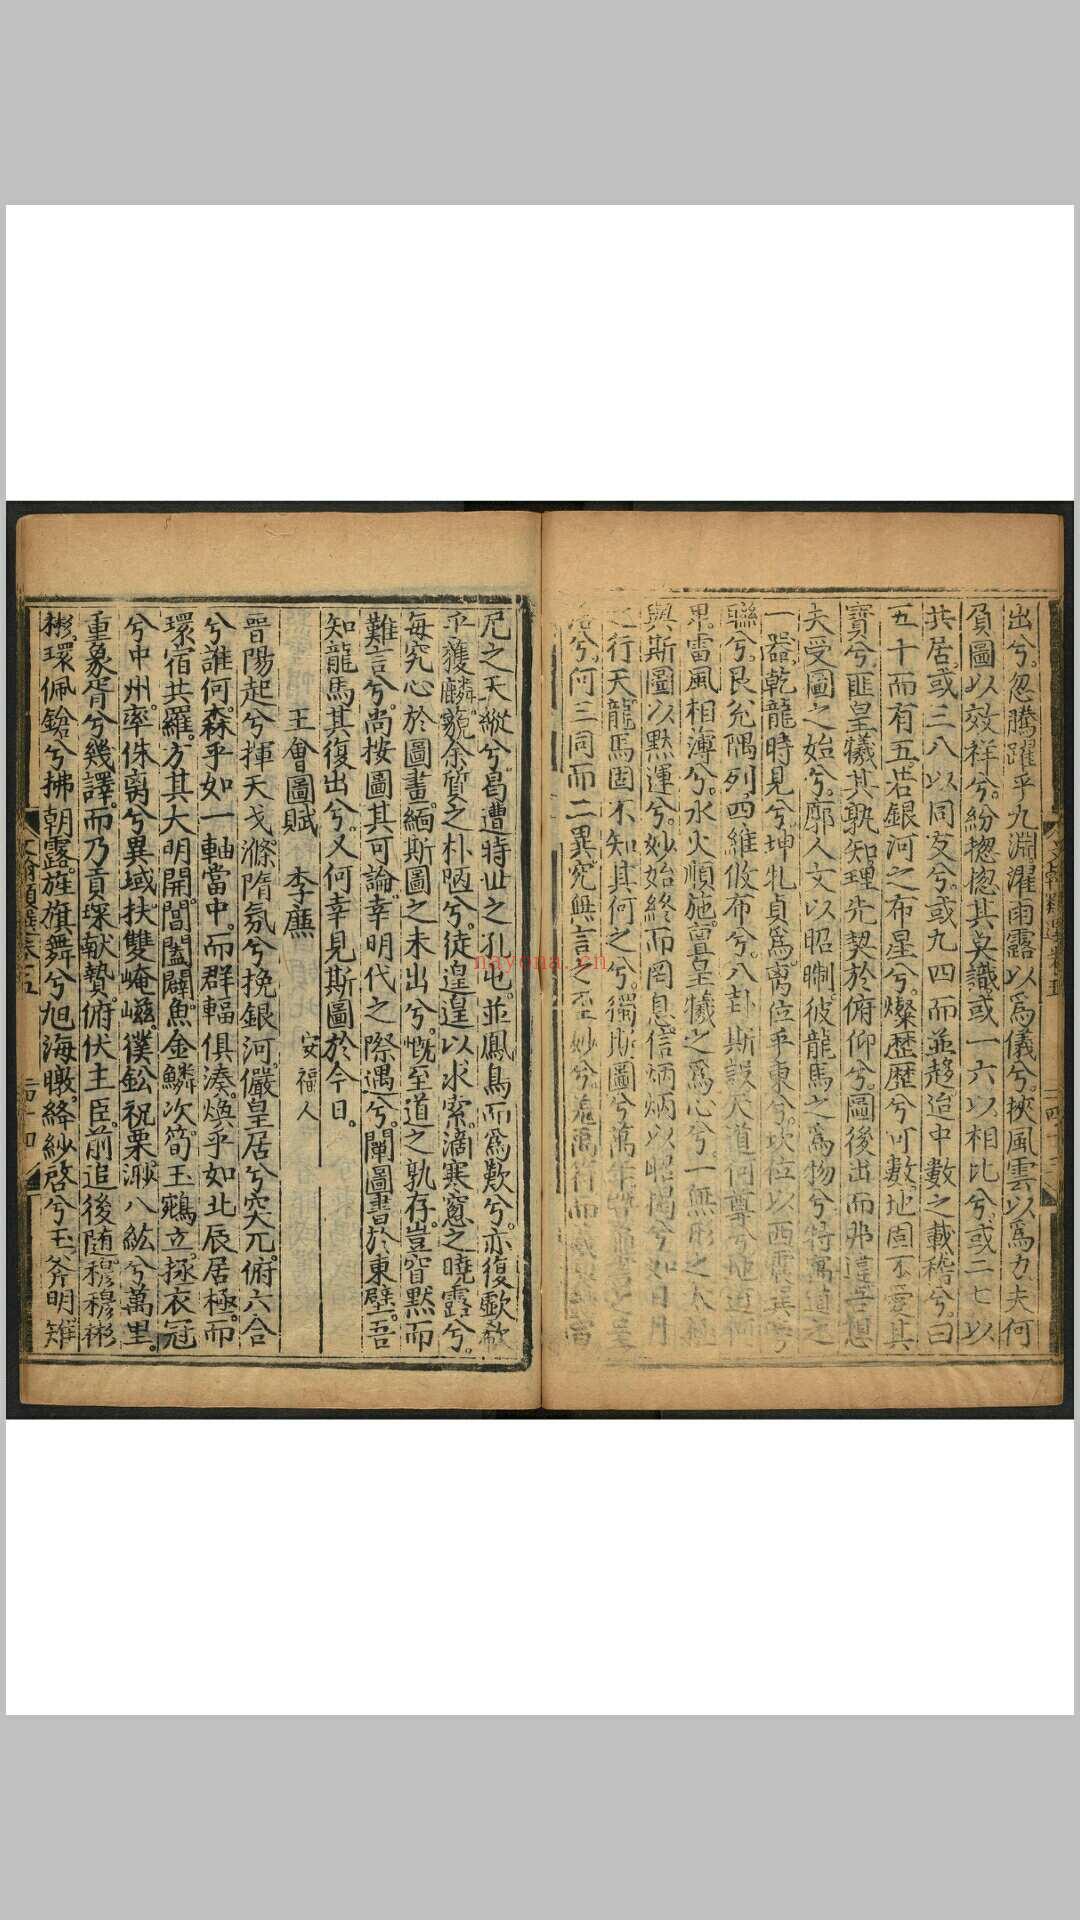 出兮忽騰躍乎九淵濯雨露以為儀兮挾風雲以為力夫何
負圖以效祥兮紛揔揔其莫識或一六以相比兮或二七以
共居或三八以同友兮或九四而並趍迨中數之載稽兮曰
五十而有五若銀河之布星兮燦歷歷兮可數地固不愛其
寶兮匪皇犧其孰知理先契於俯仰兮圖後出而弗違吾想
夫受圖之始兮廓人文以昭晣彼龍馬之為物兮特寓道之
一器乾龍時見兮坤牝貞為离位乎東兮坎位以西震巽兮
聯兮艮兊隅列四維攸布兮八卦斯設天道何尊兮地道何
卑雷風相薄兮水火順施亶皇犧之為心兮一無形之太極
與斯圖以默運兮妙始終而罔息信炳炳以昭揭兮如日月
之行天龍馬固不知其何之兮獨斯圖兮萬年
兮何三同而二異究無言之至妙兮
尼之天縱兮曷遭特丗之孔屯並鳳鳥而為歎兮亦復歔欷
乎獲麟藐余質之朴陋兮徒遑遑以求索滴寒窻之曉露兮
毎究心於圖畫緬斯圖之未出兮慨至道之孰存豈窅默而
難言兮尚按圖其可論幸明代之際遇兮闡圖書於東壁吾
知龍馬其復出兮又何幸見斯圖於今日
王會圖賦 李廉 安福人
晉陽起兮揮天戈滌隋氛兮挽銀河儼皇居兮突兀俯六合
兮誰何森乎如一軸當中而群輻俱湊煥乎如北辰居極而
環宿共羅方其大明開閶闔闢魚金鱗次筍玉鵷立拯衣冠
兮中州率侏离兮異域扶雙崦嵫僕鈆祝栗渺八紘兮萬里
重象胥兮幾譯而乃貢琛献贄俯伏主臣前追後随穆穆彬
彬環佩鎗兮拂朝露旌旗舞兮旭海暾絳紗啓兮玉斧明雉